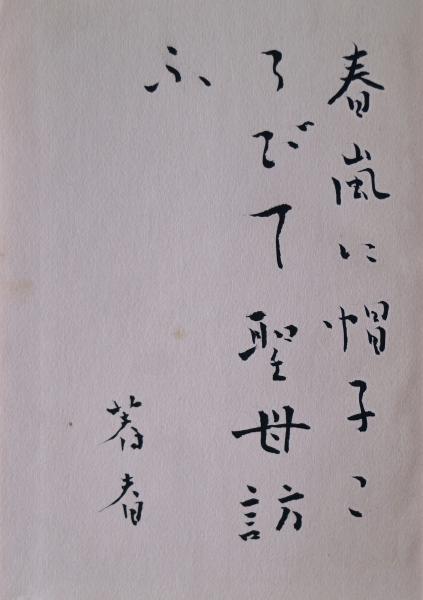 春嵐に帽子こ
ろびて聖母訪
ふ
蕃春